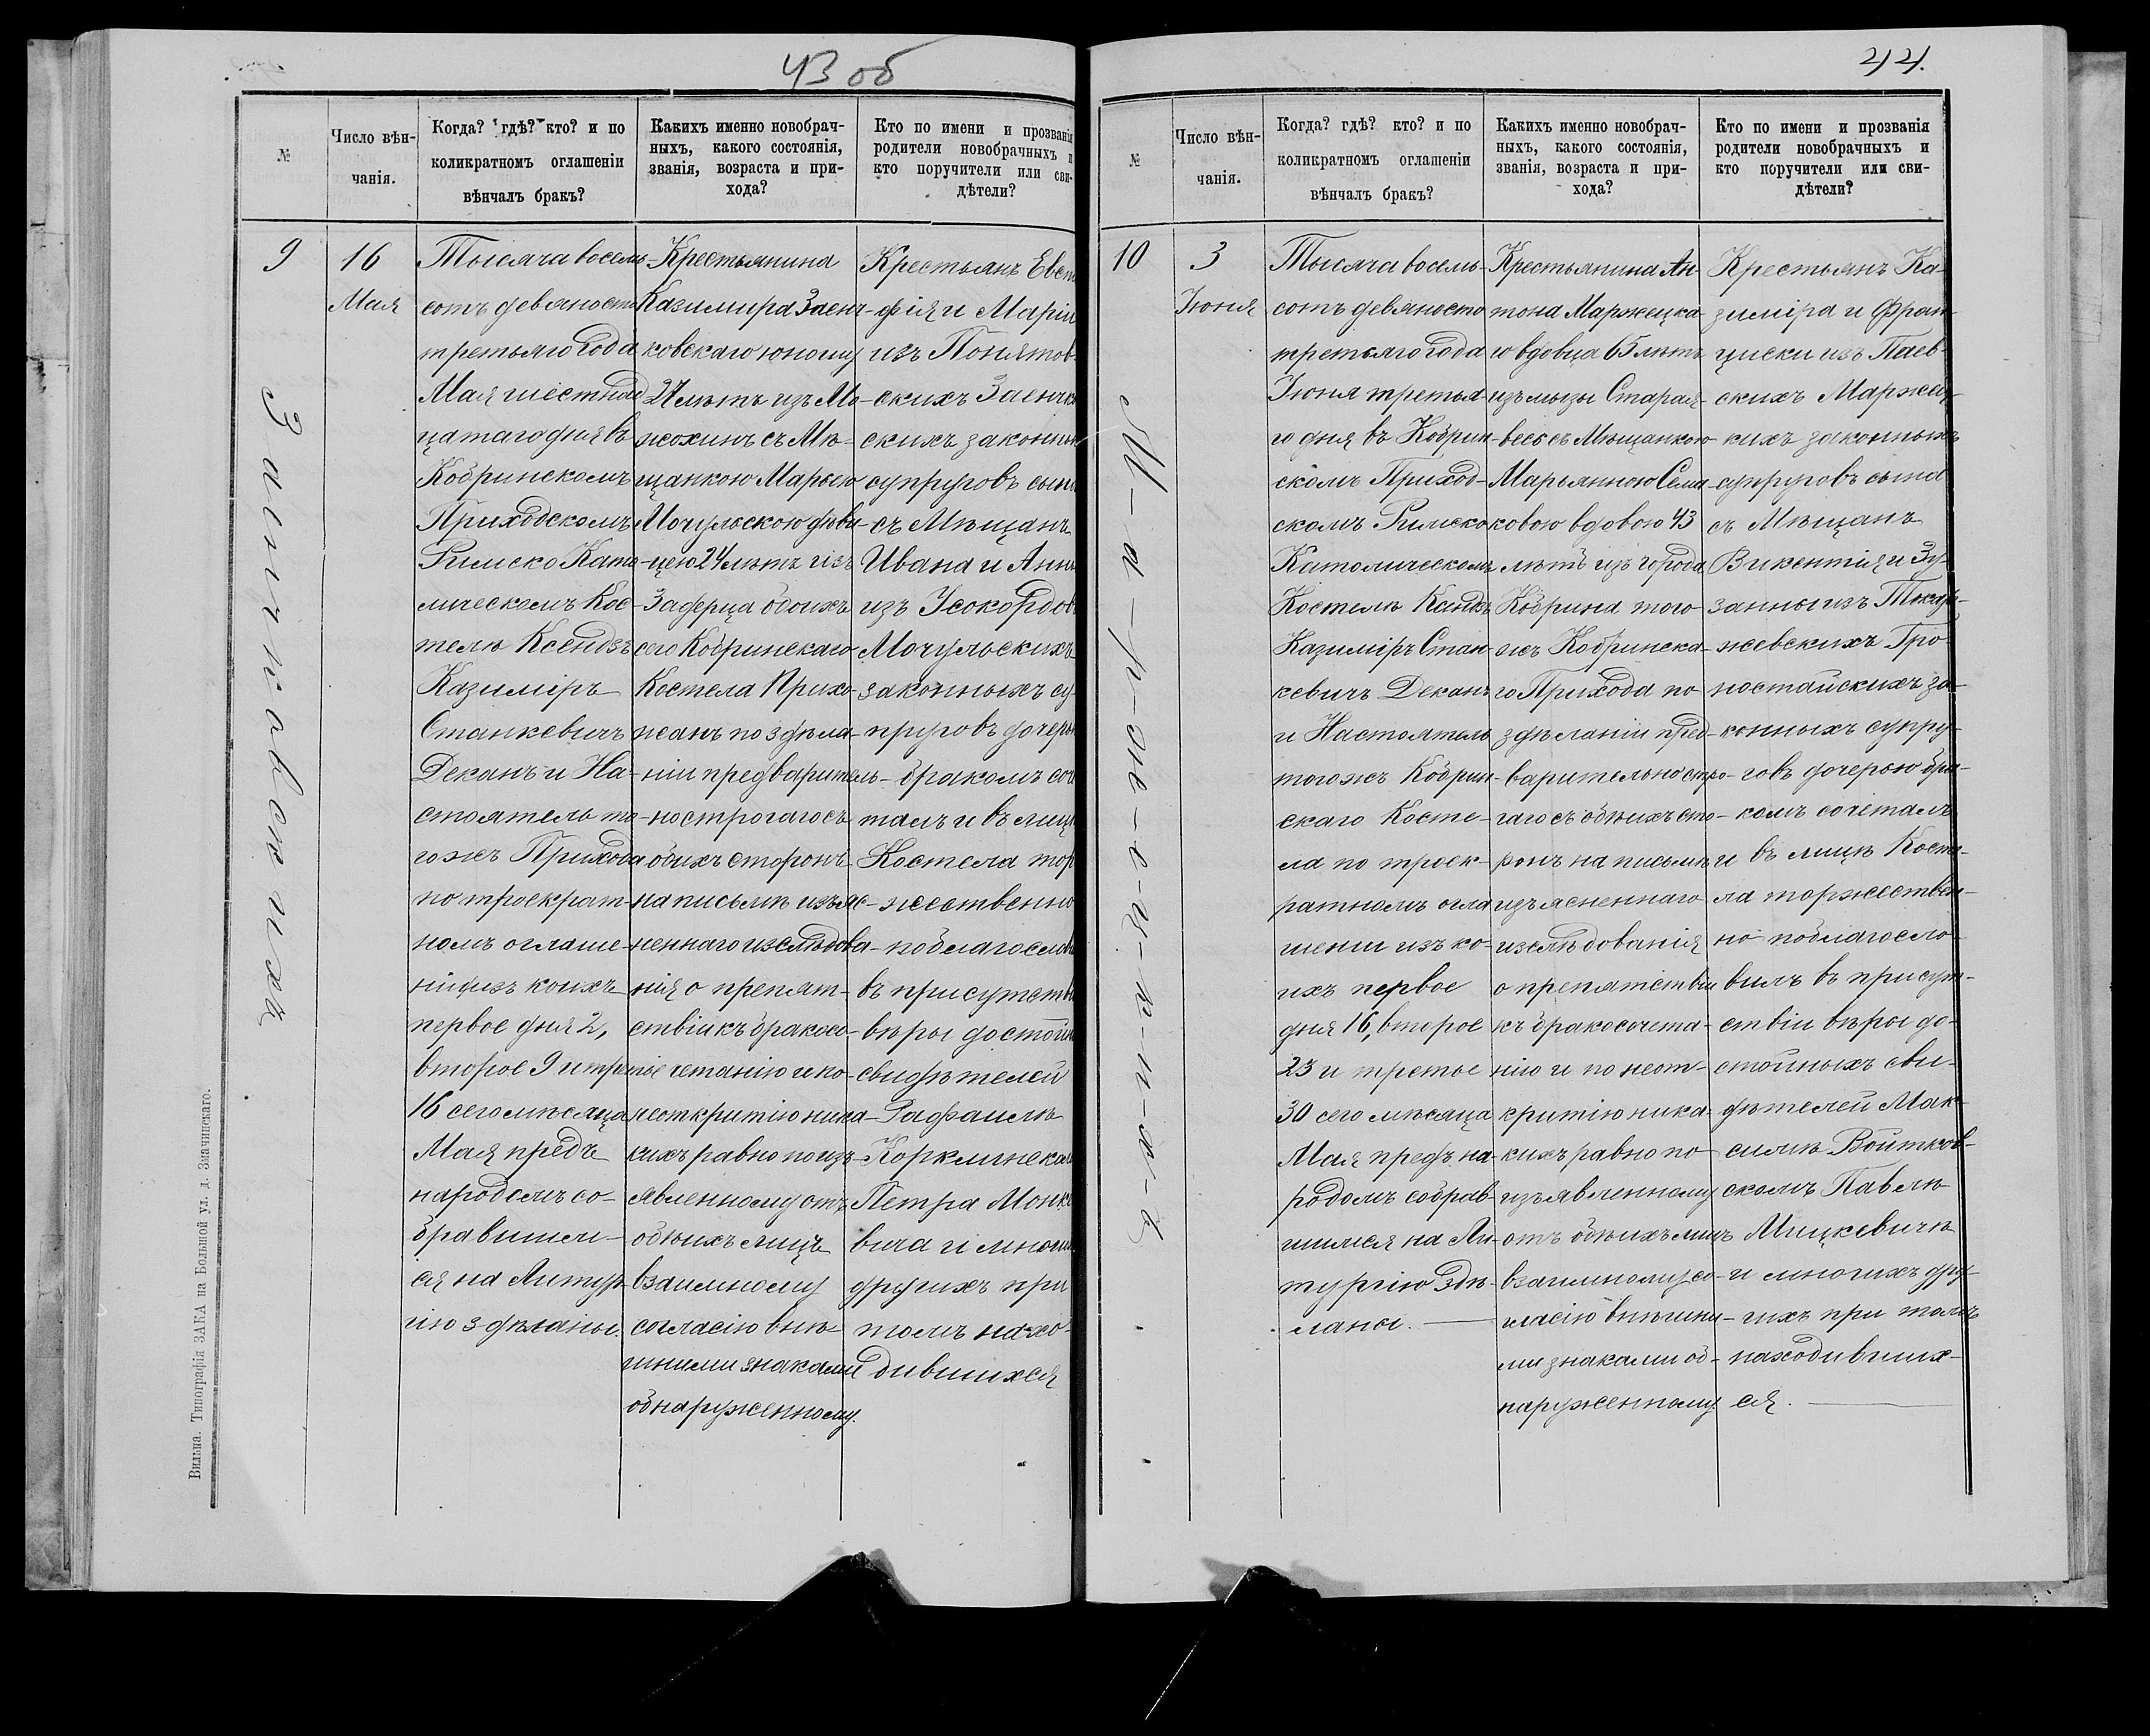 43 об
№
Число вѣн-
чанія.
Когда? гдѣ? кто? и по
коликратномъ оглашеніи
вѣнчалъ бракъ?
Какихъ именно новобрач-
ныхъ, какого состоянія,
званія, возраста и при-
хода?
Кто по имени и прозванія
родители новобрачныхъ и
кто поручители или сви-
дѣтели?
9
Заенчковскихъ
16
Мая
Тысяча восемь
сотъ девяносто
третьяго года
Мая шестнад
цатаго дня въ
Кобринскомъ
Приходскомъ
Римско Като
лическомъ Кос-
телѣ Ксендзъ
Казиміръ
Станкевичъ
Деканъ и На-
стоятель то-
го жъ Прихода
по троекрат-
номъ оглаше-
ніи изъ коихъ
первое дня 2,
второе 9 и третье
16 сего мѣсяца
Мая предъ
народомъ со-
бравшим-
ся на Литур
гію здѣланы.
Крестьянина
Казимира Заенч-
ковскаго юношу
24 лѣтъ изъ
съ Мѣ-
щанкою Марьею
Мочульскою дѣви-
цею 24 лѣтъ изъ
обоихъ
сего Кобринскаго
Костела Прихо-
жанъ по здѣла-
ніи предваритель-
но строгаго съ
обоихъ сторонъ
на письмѣ изъяс-
неннаго изслѣдова-
нія о препят-
ствіи къ бракосо-
четанію и по
неоткритію ника-
кихъ равно по изъ-
явленному отъ
обѣихъ лицъ
взаимному
согласію внѣ-
шними знаками
обнаруженному.
Крестьянъ Евст
фія и Маріи
изъ Понятов-
скихъ Заенчк
скихъ законных
супруговъ сына
съ Мѣщанъ
Ивана и Анны
изъ
Мочульскихъ
законныхъ су-
пруговъ дочерью
бракомъ соче
талъ и въ лицѣ
Костела тор
жественно
поблагослов
въ присутств
вѣры достойн
свидѣтелей
Рафаила
Петра
вича и многи
другихъ при
томъ нахо-
дившихся
Вильна. Типографія ЗАКА на Большой ул. д. Змачинскаго.
44.
№
Число вѣн-
чанія.
Когда? гдѣ? кто? и по
коликратномъ оглашеніи
вѣнчалъ бракъ?
Какихъ именно новобрач-
ныхъ, какого состоянія,
званія, возраста и при-
хода?
Кто по имени и прозванія
родители новобрачныхъ и
кто поручители или сви-
дѣтели?
10
М-а-р-ж-е-ц-к-и-х-ъ
3
Іюня
Тысяча восемь-
сотъ девяносто
третьяго года
Іюня третья-
го дня въ Кобрин-
скомъ Приход-
скомъ Римско
Католическомъ
Костелѣ Ксендзъ
Казиміръ Стан-
кевичъ Деканъ
и Настоятель
того жъ Кобрин-
скаго Косте-
ла по троек-
ратномъ огла
шеніи изъ ко-
ихъ первое
дня 16, второе
23 и третье
30 сего мѣсяца
Мая предъ на-
родомъ собрав-
шимся на Ли-
тургію здѣ-
ланы.
Крестьянина Ан-
тона Маржецка-
го вдовца 65 лѣтъ
изъ мызы Старая-
весь съ Мѣщанкою
Марьянною
ковою вдовою 43
лѣтъ изъ города
Кобрина того
жъ Кобринска-
го Прихода по
здѣланіи пред-
варительно стро-
гаго съ обѣихъ сто-
ронъ на письмѣ
изъясненнаго
изслѣдованія
о препятствіи
къ бракосочета-
нію и по неот-
критію ника-
кихъ равно по
изъявленному
отъ обѣихъ лицъ
взаимному со-
гласію внѣшни-
ми знаками об-
наруженному
Крестьянъ Ка-
зиміра и Фран-
циски изъ
скихъ Маржец-
кихъ законныхъ
супруговъ сына
съ Мѣщанъ
Викентія и Зу-
занны изъ
жевскихъ Гро-
ностайскихъ за-
конныхъ супру-
говъ дочерью бра-
комъ сочеталъ
и въ лицѣ Косте-
ла торжествен-
но поблагосло-
вилъ въ присут-
ствіи вѣры до-
стойныхъ сви-
дѣтелей Мак-
симѣ Войтков-
скомъ Павлѣ
Мицкевичѣ
и многихъ дру-
гихъ при томъ
находивших-
ся.